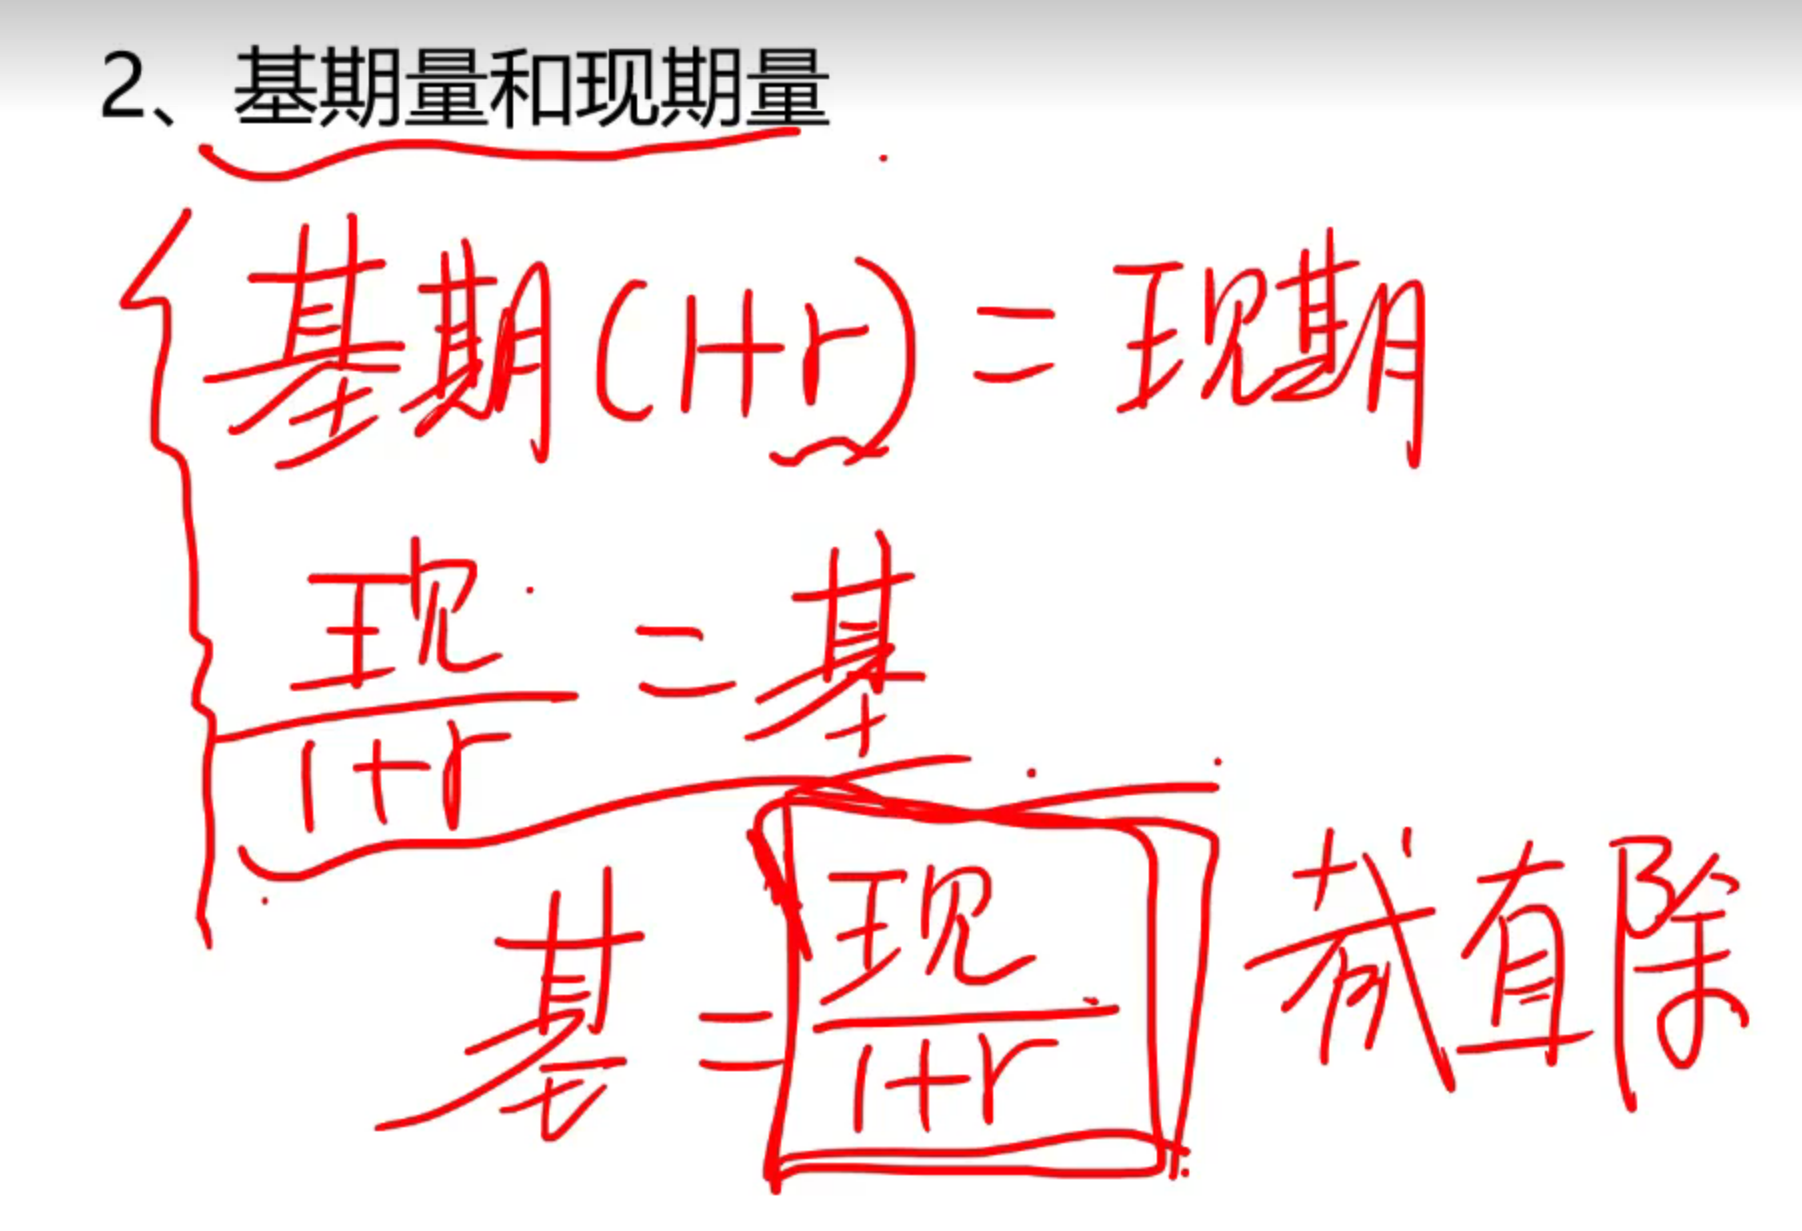 2、基期量和现期量
基期(1+r)=现期
现/1+r=基
基=现/1+r 截直除